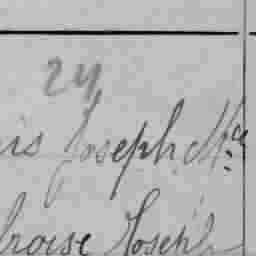 24
is Joseph M
broise Joseph